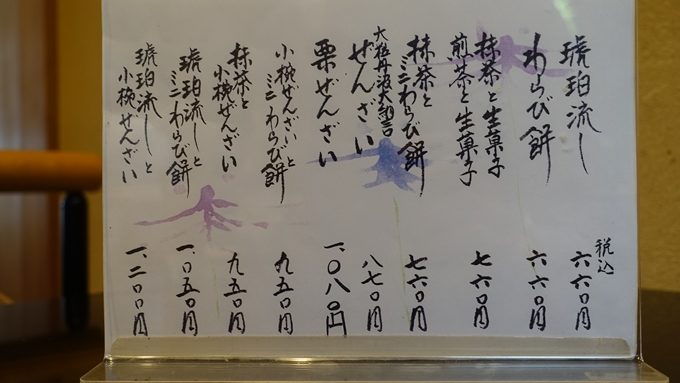 税込
琥珀流し 六六〇円
わらび餅 六六〇円
抹茶と生菓子
煎茶と生菓子 七六〇円
抹茶と
ミニわらび餅 七六〇円
大粒丹波大納言
ぜんざい 八七〇円
栗ぜんざい 一、〇八〇円
小椀ぜんざいと
ミニわらび餅 九五〇円
抹茶と
小椀ぜんざい 九五〇円
琥珀流しと
ミニわらび餅 一、〇五〇円
琥珀流しと
小椀ぜんざい 一、二〇〇円